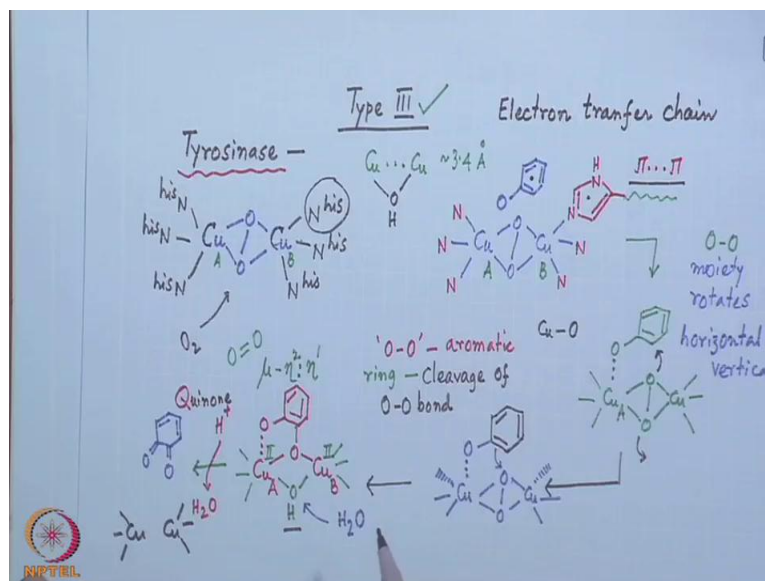 Type III ✓
Electron tranfer chain
Tyrosinase —
Cu ... Cu ~3.4 Å
O
H
hisN
hisN
hisN
Cu
A
O
O
Cu
B
N his
N his
N his
O₂
O=O
μ-η²:η¹
O
N
N
N
Cu
A
O
O
Cu
B
N
N
N
H
N
π...π
Cu-O
O-O
moiety
rotates
horizontal
vertica
'O-O' - aromatic
ring - cleavage of
O-O bond
O
Cu
A
O
O
Cu
Quinone
O
O
H⁺
H₂O
Cu
Cu
O
O
II
Cu
A
II
Cu
B
O
H
H₂O
O
Cu
O
O
Cu
NPTEL